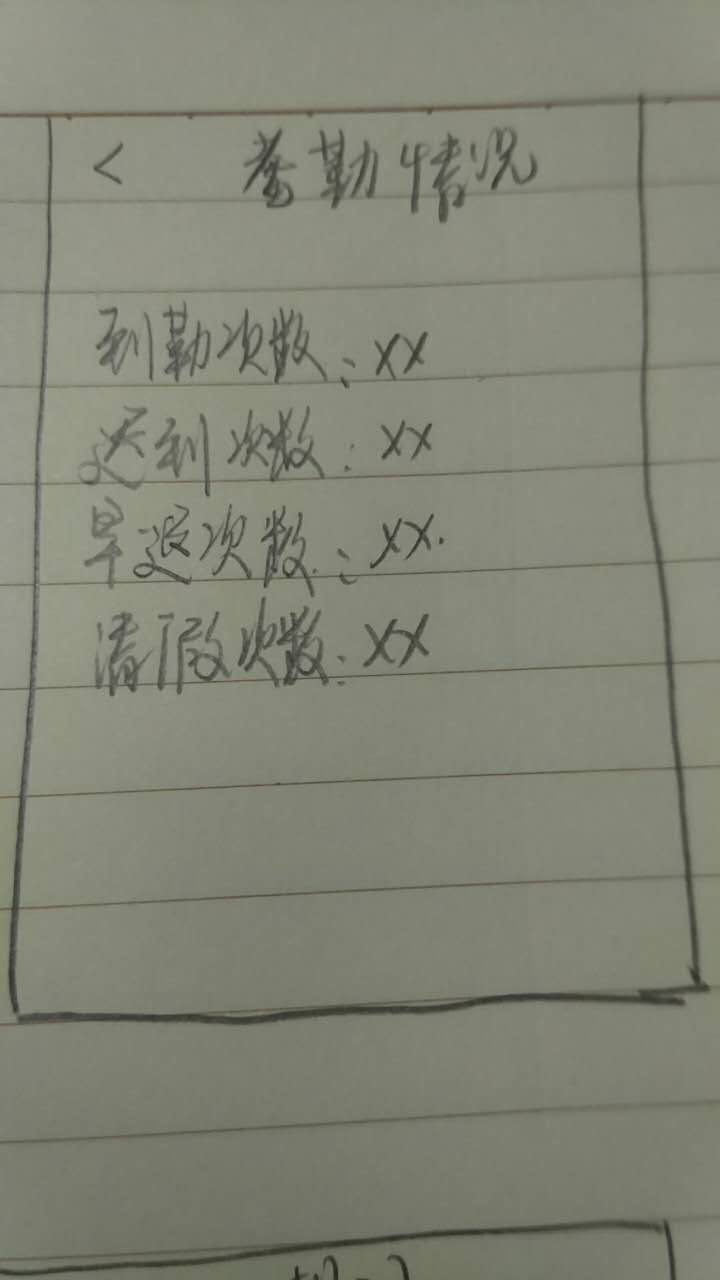 < 考勤情况
到勤次数：XX
迟到次数：XX
早退次数：XX.
请假次数：XX